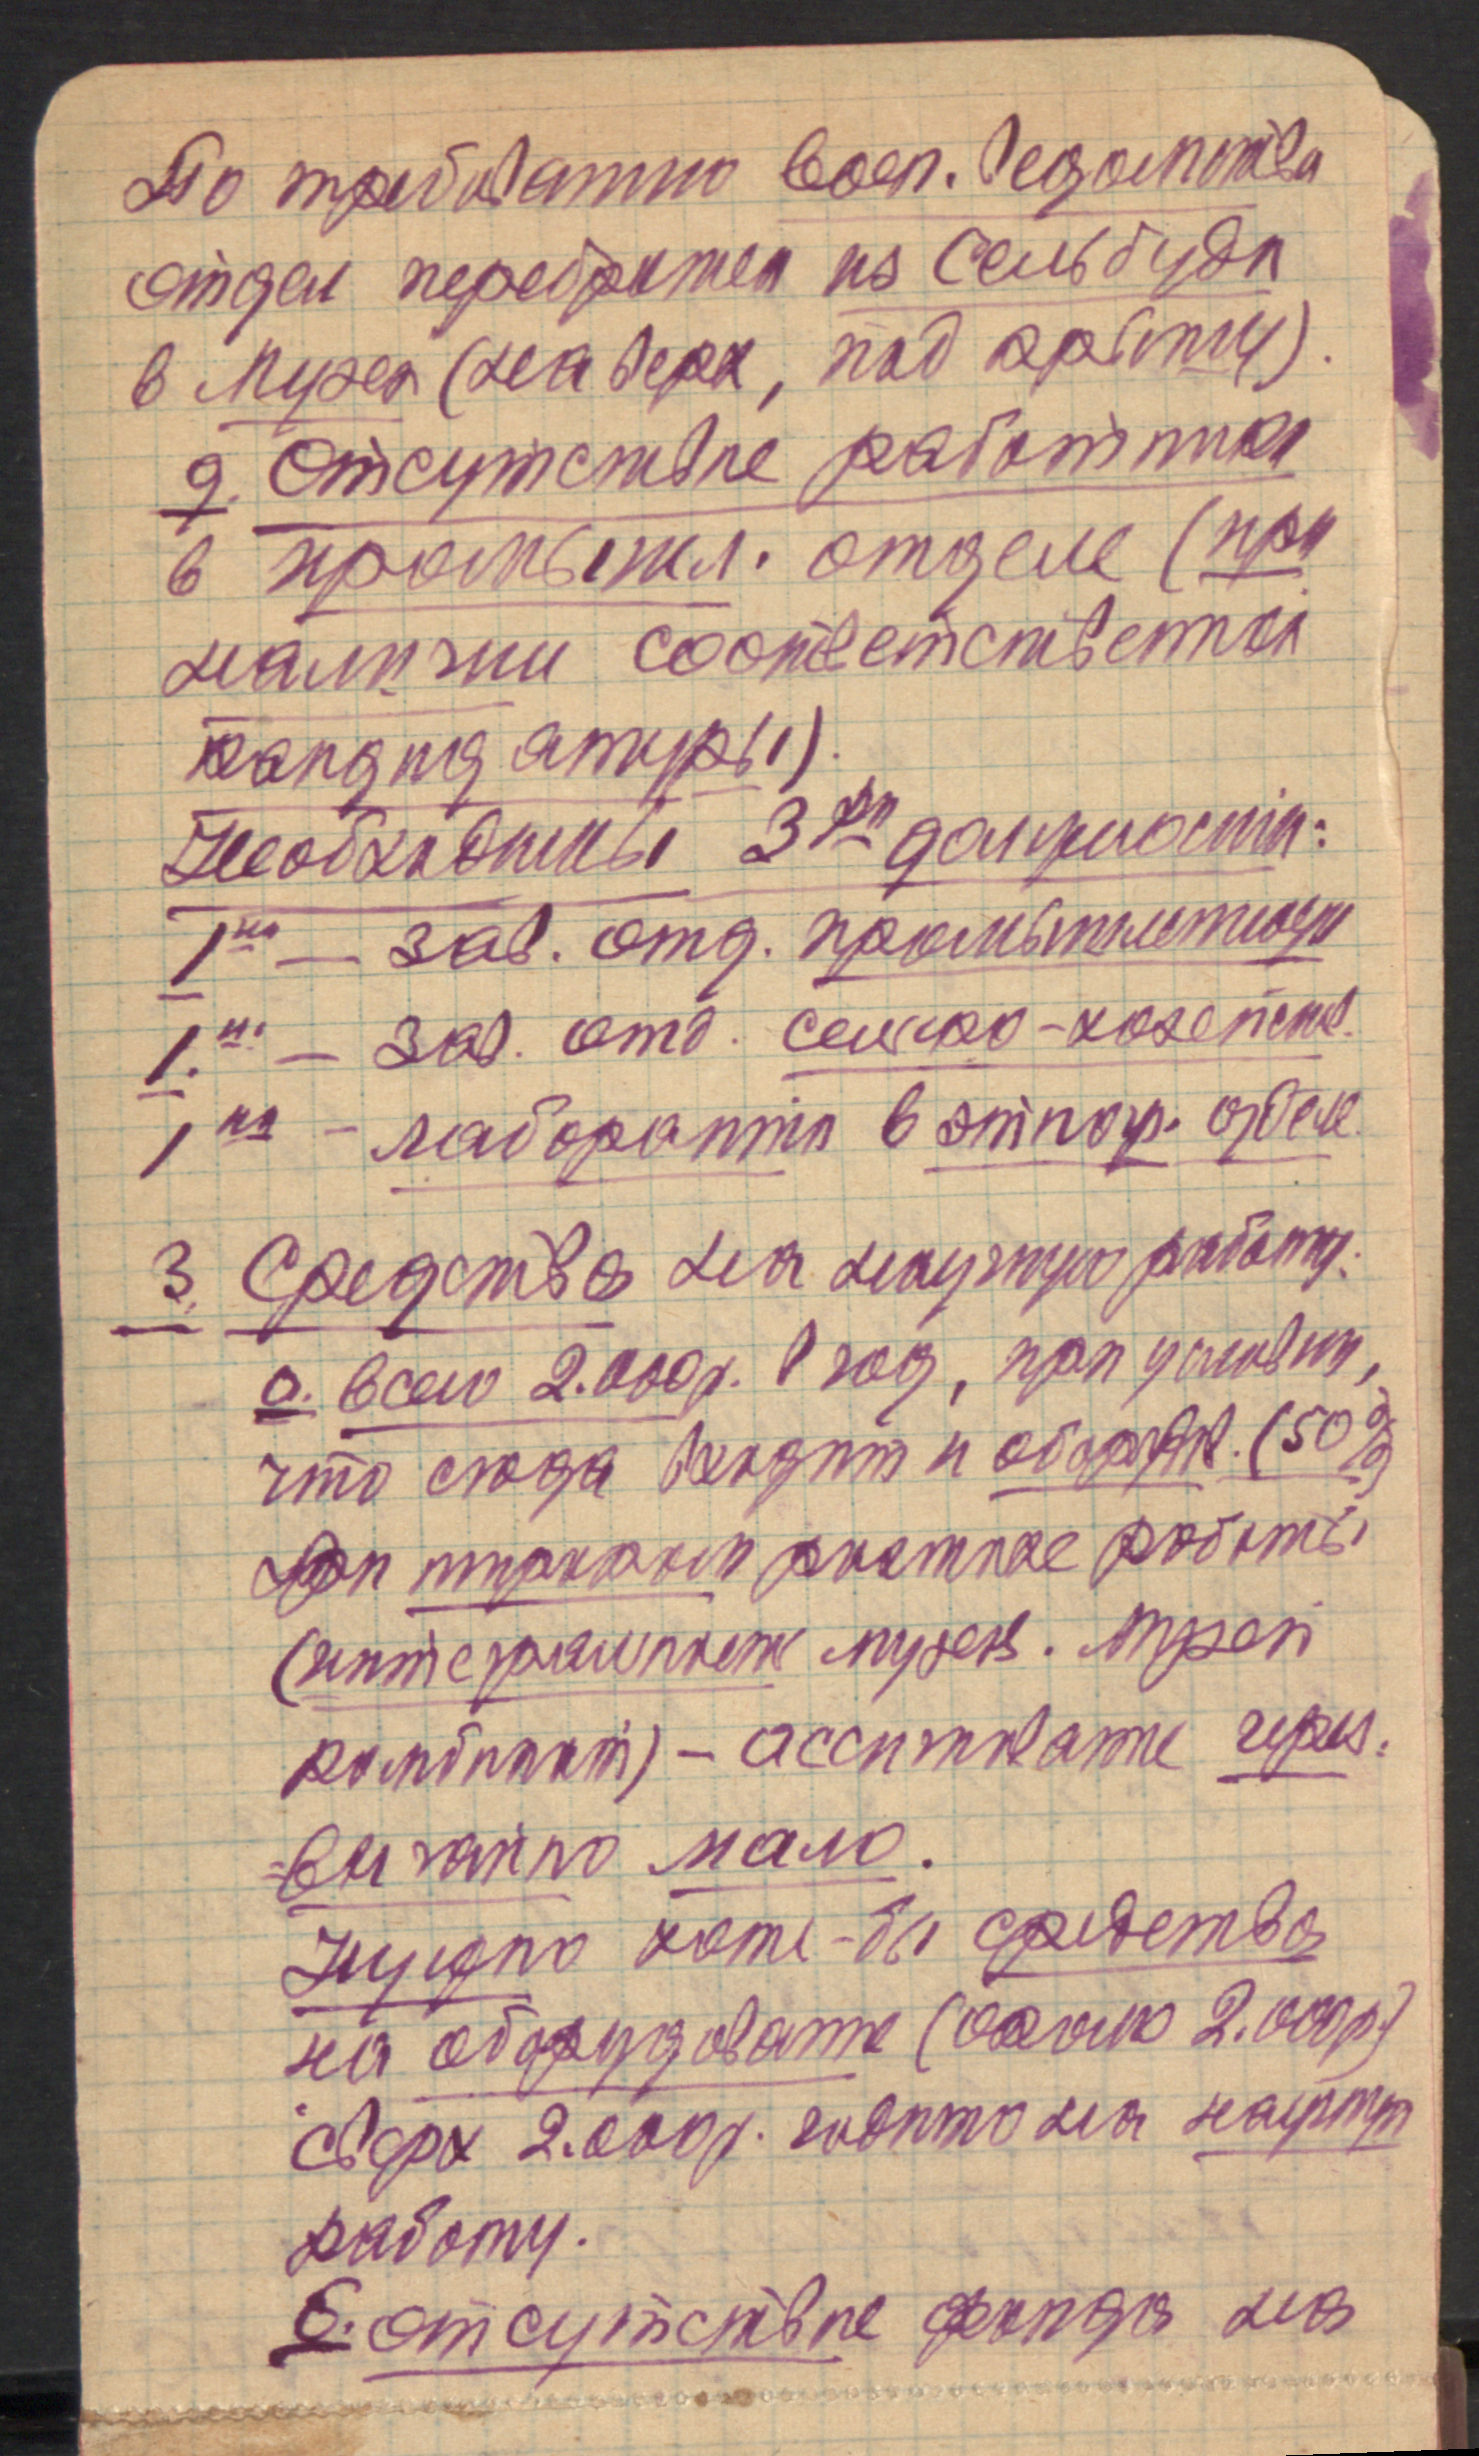 По требованию воен. ведомства
отдел переброшен из Сельбуда
в Музей (на верх, под крышу).
д. Отсутствие работника
в промышл. отделе (при
наличии соответственной
кандидатуры).
Необходимы 3 ри должности:
1 на — зав. отд. промышленност
1. на — зав. отд. сельско-хозейств.
1 на — лаборанта в этногр. отделе.
3. Средства на научную работу:
а. всего 2.000р. в год, при условии,
что сюда входит и оборудов. (50%)
При широком размахе работы
(музеев. Музей
комбинат) — ассигнование чрез-
=вычайно мало.
Нужно хотя-бы средства
на оборудование (около 2.000р.)
сверх 2.000р. на научную
работу.
б. отсутствие фонда на